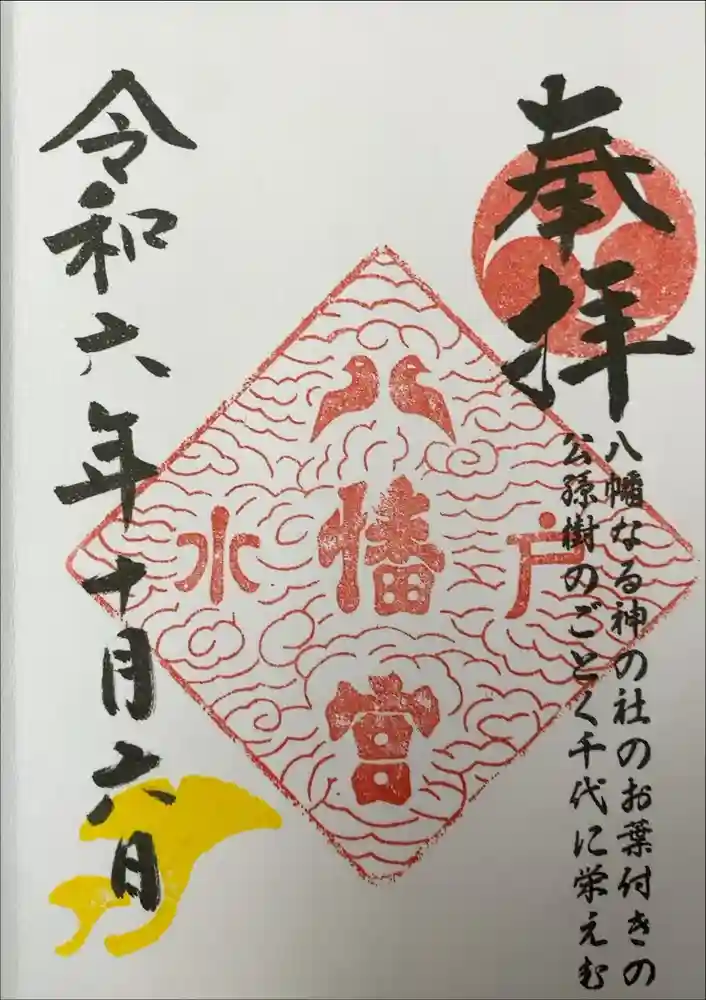 奉拝
八幡なる神の社のお葉付きの
公孫樹のごとく千代に栄えむ
水戸
八幡宮
令和六年十月六日